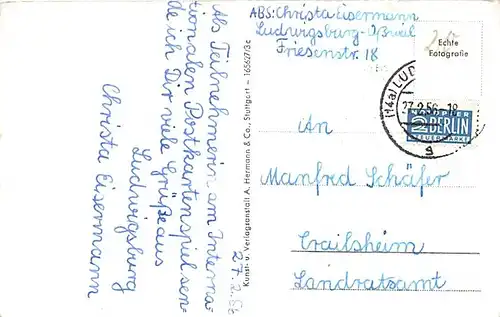 27.2.56
Als Teilnehmerin am Interna-
tionalen Postkartenspiel sen-
de ich Dir viele Grüße aus
Ludwigsburg
Christa Eisermann
Kunst- u. Verlagsanstalt A. Hermann & Co., Stuttgart - 16567/3c
ABS: Christa Eisermann
Ludwigsburg-Oßweil
Friesenstr. 18
Echte
Fotografie
(14a) LUD
27.2.56.-18
g
NOTOPFER
2 BERLIN
STEUERMARKE
An
Manfred Schäfer
Crailsheim
Landratsamt